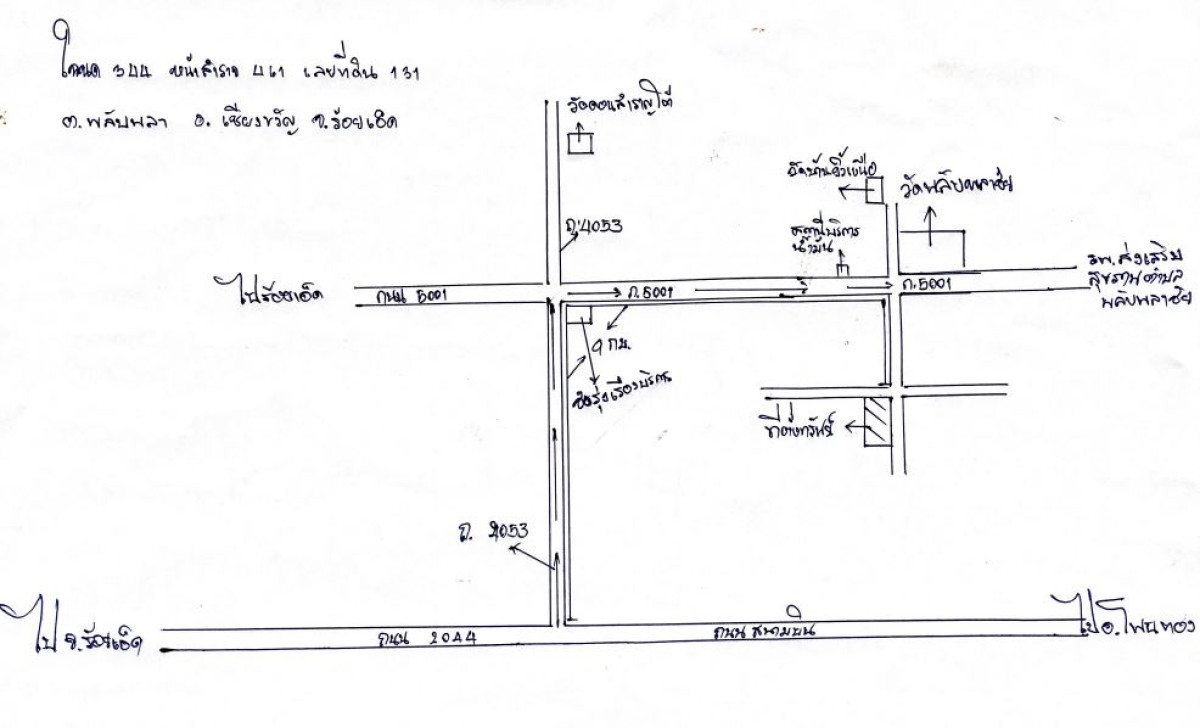 โฉนด 344 หน้าสำรวจ 461 เลขที่ดิน 131
ต.พลับพลา อ. เชียงขวัญ จ.ร้อยเอ็ด
วัดดอนสำราญใต้
วัดพลับพลาชัย
ถ.4053
สถานีบริการ
น้ำมัน
รพ.ส่งเสริม
สุขภาพตำบล
พลับพลาชัย
ไปร้อยเอ็ด
ถนน 5001
ถ.5001
ถ.5001
9 กม.
ที่ตั้งทรัพย์
ถ. 2053
ไป จ.ร้อยเอ็ด
ถนน 2044
ถนน สนามบิน
ไป อ.โพนทอง